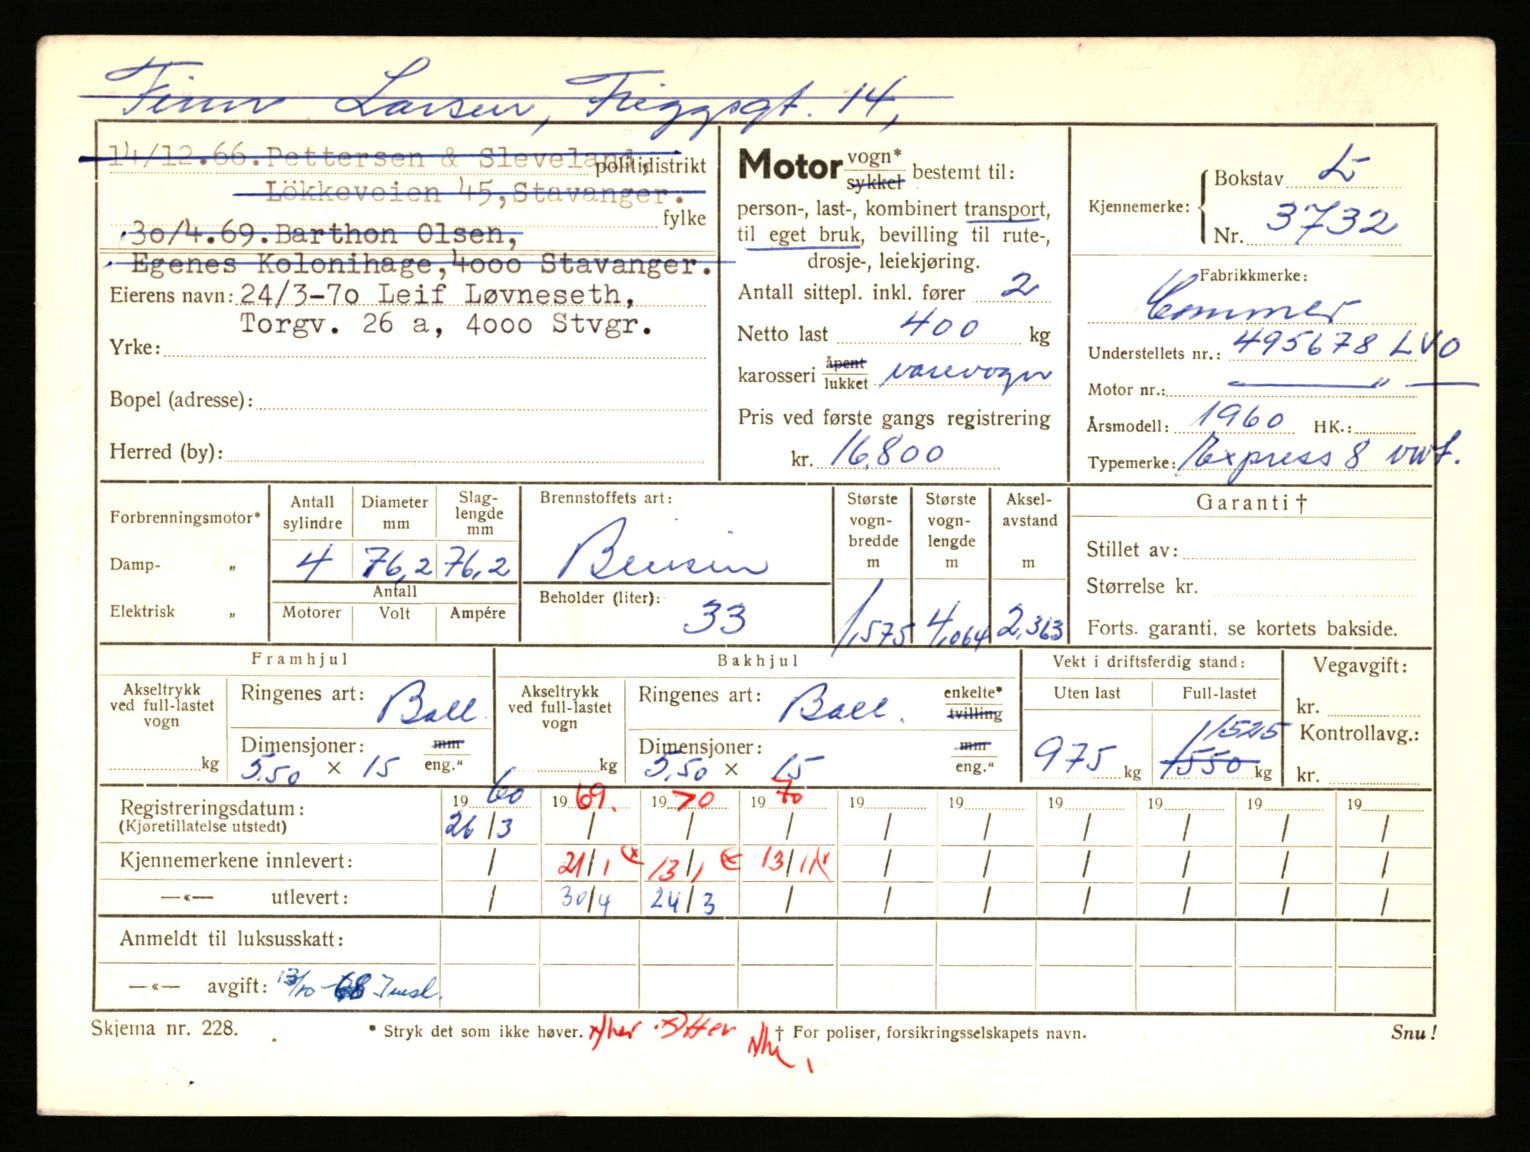 Finn Larsen, Friggsgt. 14,
14/12.66. Pettersen & Sleveland, politidistrikt
Lökkeveien 45, Stavanger.
fylke
30/4.69. Barthon Olsen,
Egenes Kolonihage, 4000 Stavanger.
Eierens navn: 24/3-70 Leif Løvneseth,
Torgv. 26 a, 4000 Stvgr.
Yrke:
Bopel (adresse):
Herred (by):
Motor vogn* sykkel bestemt til:
person-, last-, kombinert transport,
til eget bruk, bevilling til rute-,
drosje-, leiekjøring.
Antall sittepl. inkl. fører 2
Netto last 400 kg
karosseri åpent lukket varevogn
Pris ved første gangs registrering
kr. 16.800
Kjennemerke: Bokstav L
Nr. 3732
Fabrikkmerke:
Commer
Understellets nr.: 495678 LVO
Motor nr.: — " —
Årsmodell: 1960 HK.:
Typemerke: Express 8 vwt.
Forbrenningsmotor*
Damp- „
Elektrisk „
Antall sylindre 4
Diameter mm 76,2
Slag-lengde mm 76,2
Antall
Motorer Volt Ampére
Brennstoffets art:
Bensin
Beholder (liter): 33
Største vogn-bredde m 1,575
Største vogn-lengde m 4,064
Aksel-avstand m 2,363
Garanti †
Stillet av:
Størrelse kr.
Forts. garanti, se kortets bakside.
Framhjul
Akseltrykk ved full-lastet vogn
kg
Ringenes art: Ball.
Dimensjoner: mm
5.50 × 15 eng."
Bakhjul
Akseltrykk ved full-lastet vogn
kg
Ringenes art: Ball. enkelte* tvilling
Dimensjoner: mm
5,50 × 15 eng."
Vekt i driftsferdig stand:
Uten last Full-lastet
1525
975 kg 1550 kg
Vegavgift:
kr.
Kontrollavg.:
kr.
Registreringsdatum: 19 60 19 69. 19 70 19 70 19 19 19 19 19 19
(Kjøretillatelse utstedt) 26/3 / / / / / / / / /
Kjennemerkene innlevert: / 21/1 13/1 13/1 / / / / / /
—«— utlevert: / 30/4 24/3 / / / / / / /
Anmeldt til luksusskatt:
—«— avgift: 13/10-68
Skjema nr. 228.
* Stryk det som ikke høver.
† For poliser, forsikringsselskapets navn.
Snu!